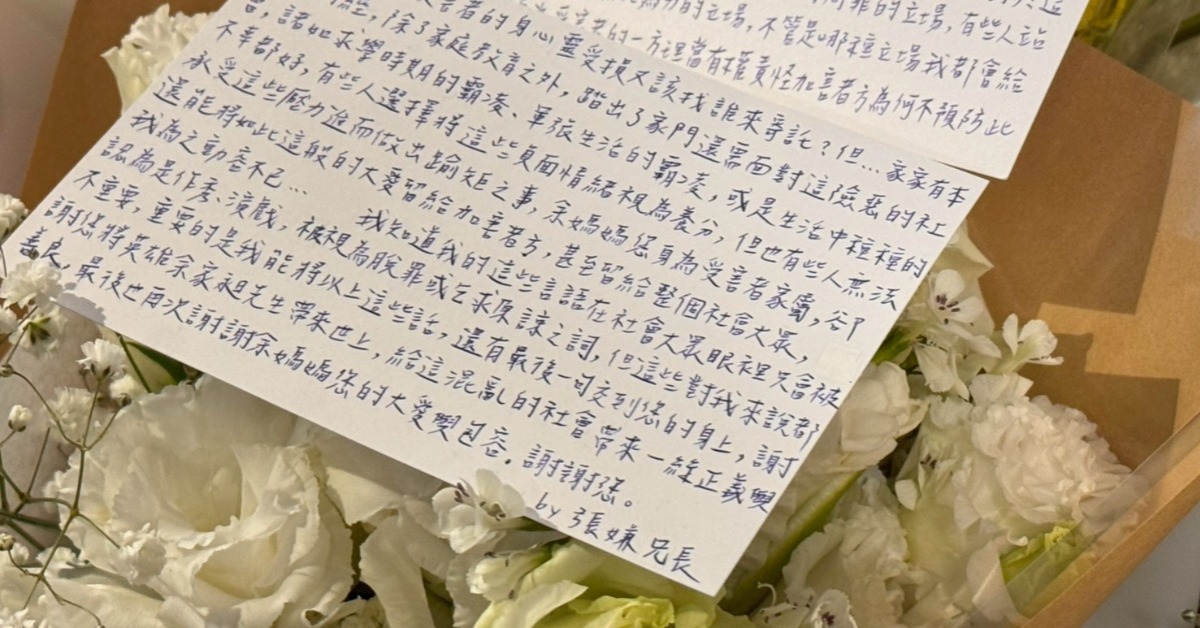 罪的立場,有些人站
的立場,不管是哪種立場我都會給
的一方理當有權責怪加害者方為何不預防此
害者的身心靈受損又該找誰來寄託?但...家家有本
經,除了家庭教育之外,踏出了家門還需面對這險惡的社
會,諸如求學時期的霸凌、單張生活的霸凌,或是生活中種種的
不幸都好,有些人選擇將這些負面情緒視為養分,但也有些人無法
承受這些壓力進而做出踰矩之事,余媽媽您身為受害者家屬,卻
還能將如此這般的大愛留給加害者方,甚至留給整個社會大眾,
我為之動容不已... 我知道我的這些言語在社會大眾眼裡只會被
認為是作秀、演戲,被視為脫罪或乞求原諒之詞,但這些對我來說都
不重要,重要的是我能將以上這些話,還有最後一句交到您的身上,謝
謝您將英雄余家昶先生帶來世上,給這混亂的社會帶來一絲正義與
善良,最後也再次謝謝余媽媽您的大愛與包容,謝謝您。
by 張嫌兄長